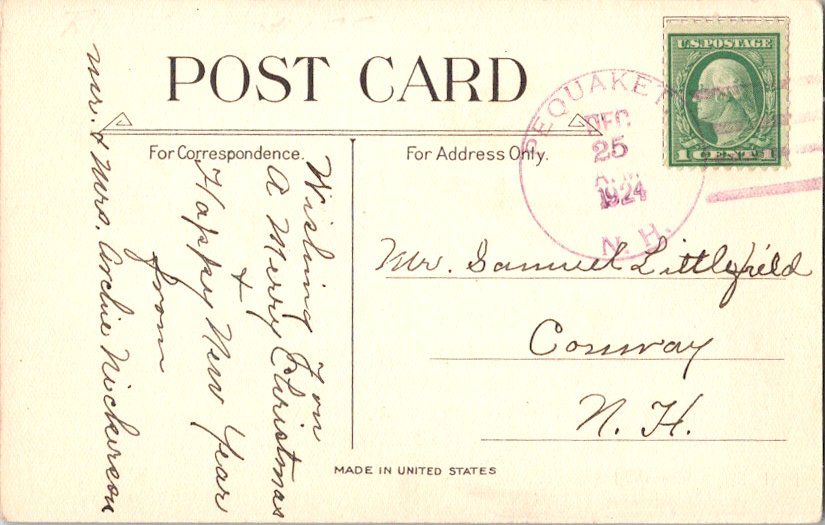 POST CARD
U.S. POSTAGE
1 CENT 1
PEQUAKET
DEC
25
A.M.
1924
N. H.
For Correspondence.
For Address Only.
Wishing You
A Merry Christmas
+
Happy New Year
from
Mr. & Mrs. Archie Nickerson
Mr. Samuel Littlefield
Conway
N. H.
MADE IN UNITED STATES